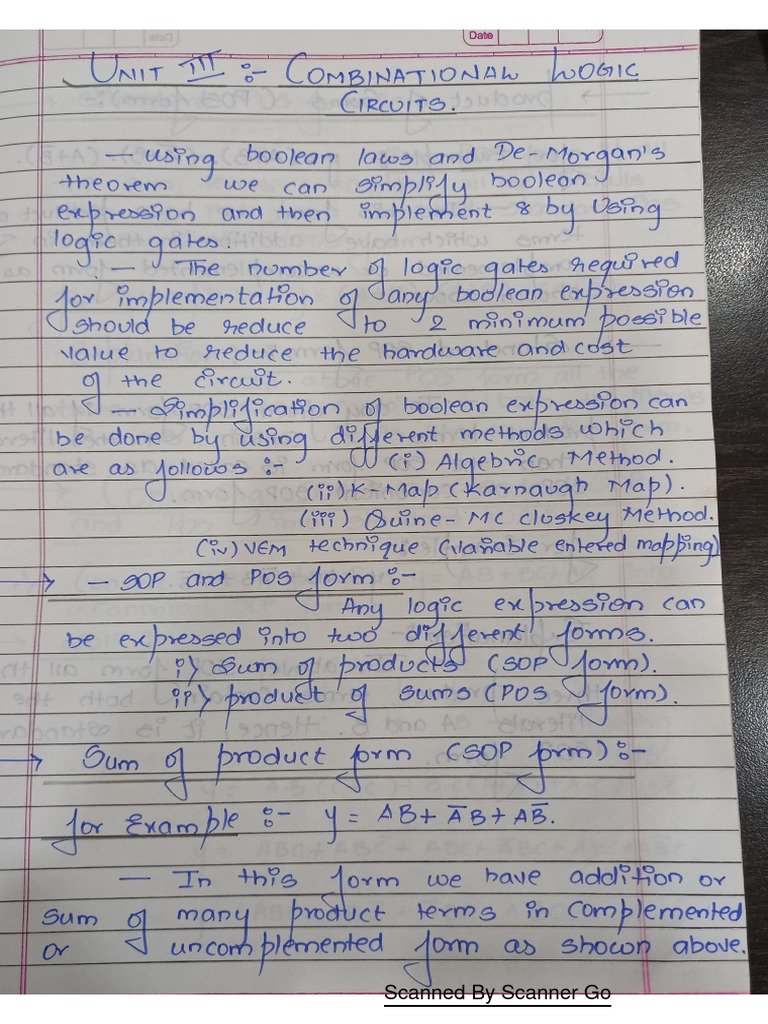 Date
UNIT III :- COMBINATIONAL LOGIC
CIRCUITS.
- using boolean laws and De-Morgan's
theorem we can simplify boolean
expression and then implement & by Using
logic gates.
- The number of logic gates required
for implementation of any boolean expression
should be reduce to 2 minimum possible
value to reduce the hardware and cost
of the circuit.
- Simplification of boolean expression can
be done by using different methods which
are as follows :- (i) Algebric Method.
(ii) K-Map (Karnaugh Map).
(iii) Quine-Mc Cluskey Method.
(iv) VEM technique (Variable entered mapping)
→ - SOP and POS form :-
Any logic expression can
be expressed into two different forms.
i) Sum of products (SOP form).
ii) product of sums (POS form).
→ Sum of product form (SOP form) :-
for Example :- y = AB + A̅B + AB̅.
- In this form we have addition or
sum of many product terms in complemented
or uncomplemented form as shown above.
Scanned By Scanner Go